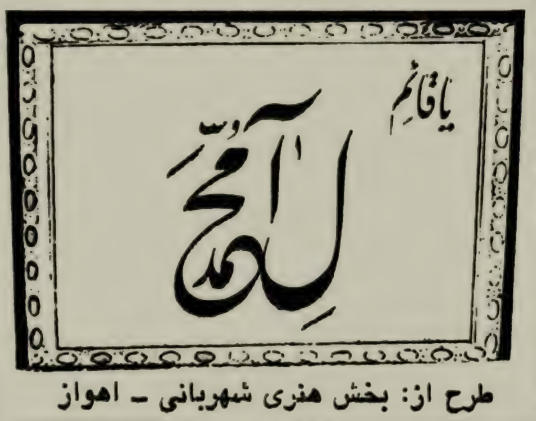 یا قائم
آل محمد
طرح از: بخش هنری شهربانی ــ اهواز